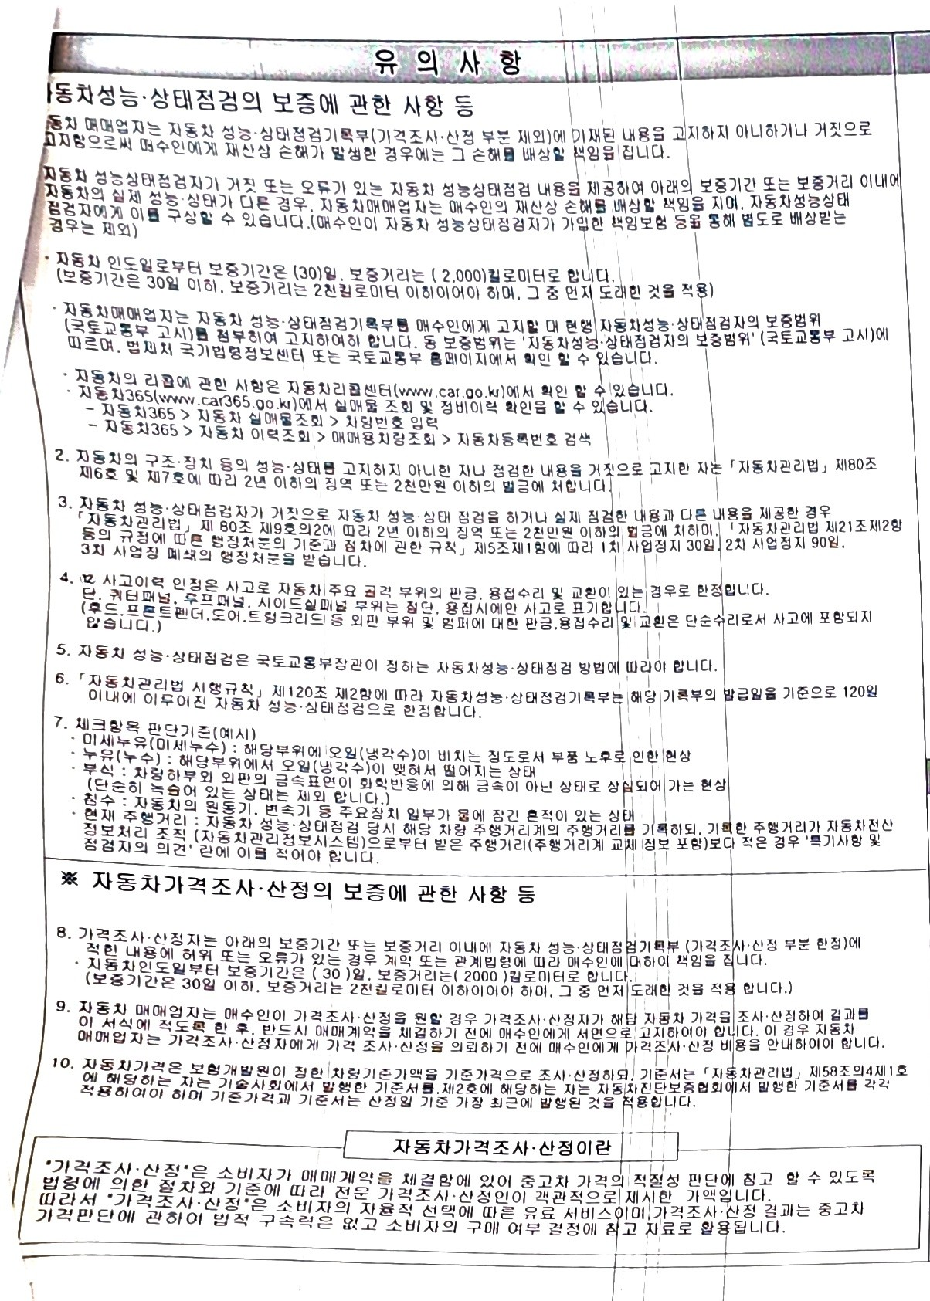 유 의 사 항
자동차성능·상태점검의 보증에 관한 사항 등
동차 매매업자는 자동차 성능·상태점검기록부(가격조사·산정 부분 제외)에 기재된 내용을 고지하지 아니하거나 거짓으로
고지함으로써 매수인에게 재산상 손해가 발생한 경우에는 그 손해를 배상할 책임을 집니다.
자동차 성능상태점검자가 거짓 또는 오류가 있는 자동차 성능상태점검 내용을 제공하여 아래의 보증기간 또는 보증거리 이내에
자동차의 실제 성능·상태가 다른 경우, 자동차매매업자는 매수인의 재산상 손해를 배상할 책임을 지며, 자동차성능상태
점검자에게 이를 구상할 수 있습니다.(매수인이 자동차 성능상태점검자가 가입한 책임보험 등을 통해 별도로 배상받는
경우는 제외)
· 자동차 인도일로부터 보증기간은 (30)일, 보증거리는 ( 2,000)킬로미터로 합니다.
(보증기간은 30일 이하, 보증거리는 2천킬로미터 이하이어야 하며, 그 중 먼저 도래한 것을 적용)
· 자동차매매업자는 자동차 성능·상태점검기록부를 매수인에게 고지할 때 현행 자동차성능·상태점검자의 보증범위
(국토교통부 고시)를 첨부하여 고지하여야 합니다. 동 보증범위는 '자동차성능·상태점검자의 보증범위' (국토교통부 고시)에
따르며, 법제처 국가법령정보센터 또는 국토교통부 홈페이지에서 확인 할 수 있습니다.
· 자동차의 리콜에 관한 사항은 자동차리콜센터(www.car.go.kr)에서 확인 할 수 있습니다.
· 자동차365(www.car365.go.kr)에서 실매물 조회 및 정비이력 확인을 할 수 있습니다.
– 자동차365 > 자동차 실매물조회 > 차량번호 입력
– 자동차365 > 자동차 이력조회 > 매매용차량조회 > 자동차등록번호 검색
2. 자동차의 구조·장치 등의 성능·상태를 고지하지 아니한 자나 점검한 내용을 거짓으로 고지한 자는 「자동차관리법」 제80조
제6호 및 제7호에 따라 2년 이하의 징역 또는 2천만원 이하의 벌금에 처합니다.
3. 자동차 성능·상태점검자가 거짓으로 자동차 성능·상태 점검을 하거나 실제 점검한 내용과 다른 내용을 제공한 경우
「자동차관리법」 제 80조 제9호의2에 따라 2년 이하의 징역 또는 2천만원 이하의 벌금에 처하며, 「자동차관리법 제21조제2항
등의 규정에 따른 행정처분의 기준과 절차에 관한 규칙」 제5조제1항에 따라 1차 사업정지 30일, 2차 사업정지 90일,
3차 사업장 폐쇄의 행정처분을 받습니다.
4. ⑫ 사고이력 인정은 사고로 자동차 주요 골격 부위의 판금, 용접수리 및 교환이 있는 경우로 한정합니다.
단, 쿼터패널, 루프패널, 사이드실패널 부위는 절단, 용접시에만 사고로 표기합니다.
(후드,프론트펜더,도어,트렁크리드 등 외판 부위 및 범퍼에 대한 판금,용접수리 및 교환은 단순수리로서 사고에 포함되지
않습니다.)
5. 자동차 성능·상태점검은 국토교통부장관이 정하는 자동차성능·상태점검 방법에 따라야 합니다.
6. 「자동차관리법 시행규칙」 제120조 제2항에 따라 자동차성능·상태점검기록부는 해당 기록부의 발급일을 기준으로 120일
이내에 이루어진 자동차 성능·상태점검으로 한정합니다.
7. 체크항목 판단기준(예시)
· 미세누유(미세누수) : 해당부위에 오일(냉각수)이 비치는 정도로서 부품 노후로 인한 현상
· 누유(누수) : 해당부위에서 오일(냉각수)이 맺혀서 떨어지는 상태
· 부식 : 차량하부와 외판의 금속표면이 화학반응에 의해 금속이 아닌 상태로 상실되어 가는 현상
(단순히 녹슬어 있는 상태는 제외 합니다.)
· 침수 : 자동차의 원동기, 변속기 등 주요장치 일부가 물에 잠긴 흔적이 있는 상태
· 현재 주행거리 : 자동차 성능·상태점검 당시 해당 차량 주행거리계의 주행거리를 기록하되, 기록한 주행거리가 자동차전산
정보처리 조직 (자동차관리정보시스템)으로부터 받은 주행거리(주행거리계 교체 정보 포함)보다 적은 경우 '특기사항 및
점검자의 의견' 란에 이를 적어야 합니다.
※ 자동차가격조사·산정의 보증에 관한 사항 등
8. 가격조사·산정자는 아래의 보증기간 또는 보증거리 이내에 자동차 성능·상태점검기록부 (가격조사·산정 부분 한정)에
적힌 내용에 허위 또는 오류가 있는 경우 계약 또는 관계법령에 따라 매수인에 대하여 책임을 집니다.
· 자동차인도일부터 보증기간은 ( 30 )일, 보증거리는( 2000 )킬로미터로 합니다.
(보증기간은 30일 이하, 보증거리는 2천킬로미터 이하이어야 하며, 그 중 먼저 도래한 것을 적용 합니다.)
9. 자동차 매매업자는 매수인이 가격조사·산정을 원할 경우 가격조사·산정자가 해당 자동차 가격을 조사·산정하여 결과를
이 서식에 적도록 한 후, 반드시 매매계약을 체결하기 전에 매수인에게 서면으로 고지하여야 합니다. 이 경우 자동차
매매업자는 가격조사·산정자에게 가격 조사·산정을 의뢰하기 전에 매수인에게 가격조사·산정 비용을 안내하여야 합니다.
10. 자동차가격은 보험개발원이 정한 차량기준가액을 기준가격으로 조사·산정하되, 기준서는 「자동차관리법」 제58조의4제1호
에 해당하는 자는 기술사회에서 발행한 기준서를, 제2호에 해당하는 자는 자동차진단보증협회에서 발행한 기준서를 각각
적용하여야 하며 기준가격과 기준서는 산정일 기준 가장 최근에 발행된 것을 적용합니다.
자동차가격조사·산정이란
"가격조사·산정"은 소비자가 매매계약을 체결함에 있어 중고차 가격의 적절성 판단에 참고 할 수 있도록
법령에 의한 절차와 기준에 따라 전문 가격조사·산정인이 객관적으로 제시한 가액입니다.
따라서 "가격조사·산정"은 소비자의 자율적 선택에 따른 유료 서비스이며,가격조사·산정 결과는 중고차
가격판단에 관하여 법적 구속력은 없고 소비자의 구매 여부 결정에 참고 자료로 활용됩니다.